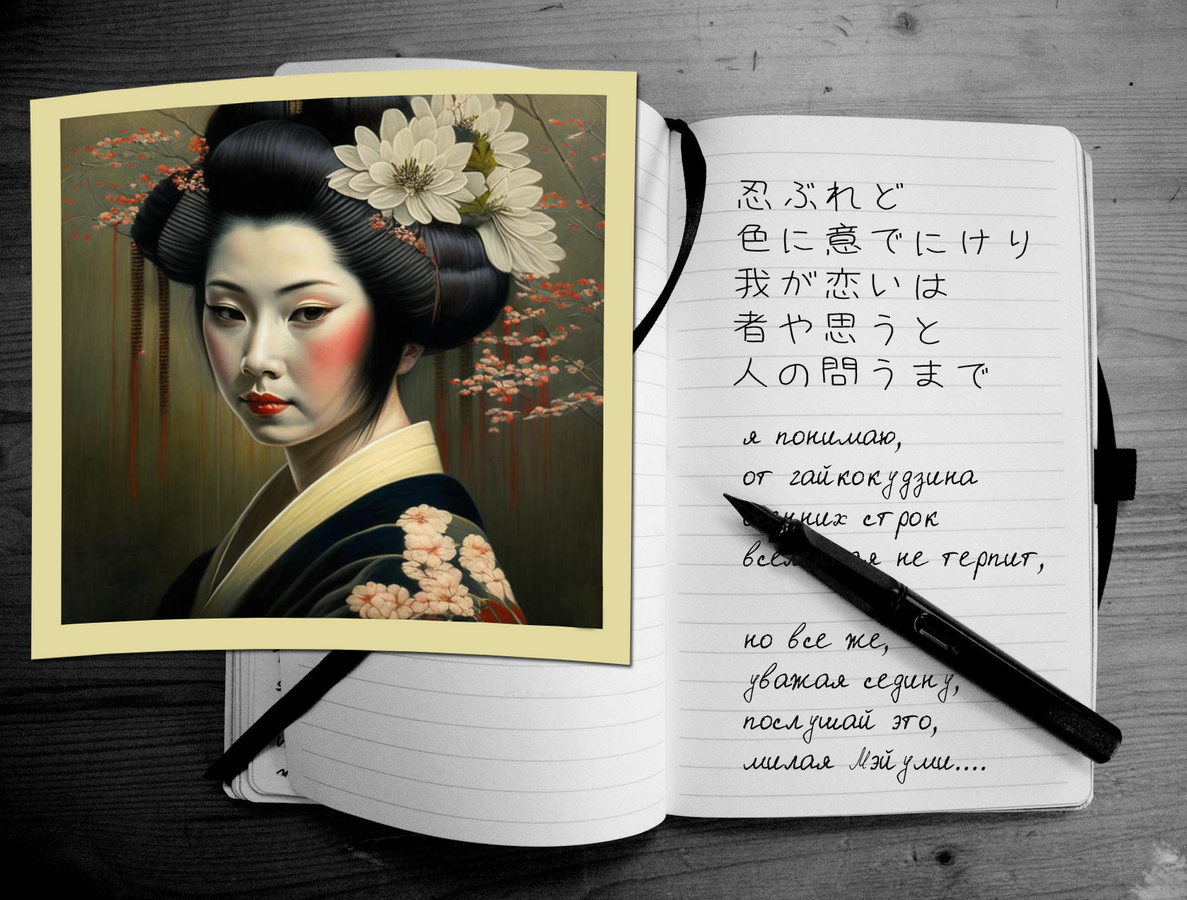 忍ぶれど
色に意でにけり
我が恋いは
者や思うと
人の問うまで
я понимаю,
от гайкокудзина
строк
не терпит,
но все же,
уважая седину,
послушай это,
милая Мэйуми....